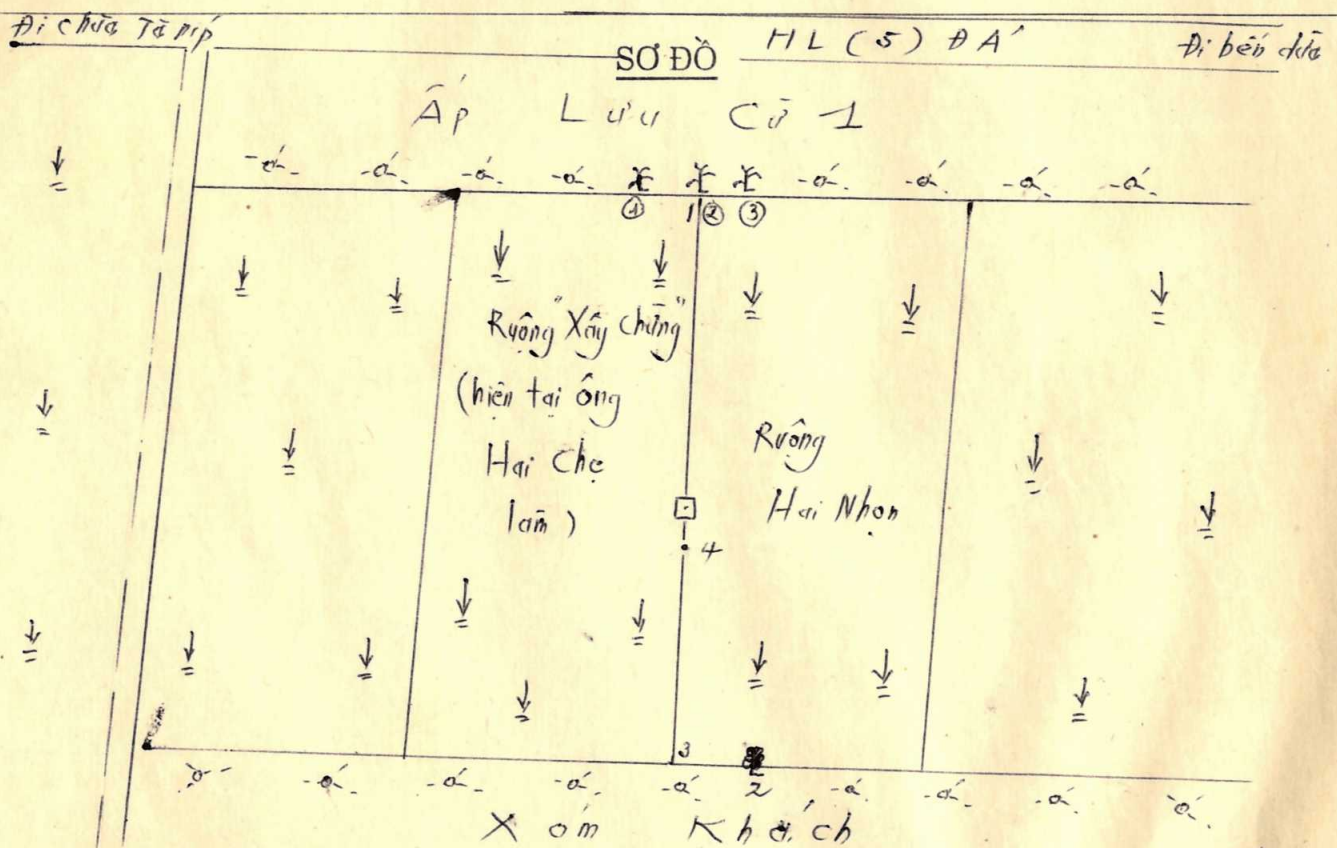 Đi chùa Tà níp
SƠ ĐỒ
HL (5) ĐÁ
Đi bến dừa
Ấp Lưu Cừ 1
④ 1 ② ③
Ruộng "Xây Chưng"
(hiện tại ông
Hai Chẹ
làm)
Ruộng
Hai Nhọn
4
3
2
Xóm Khách